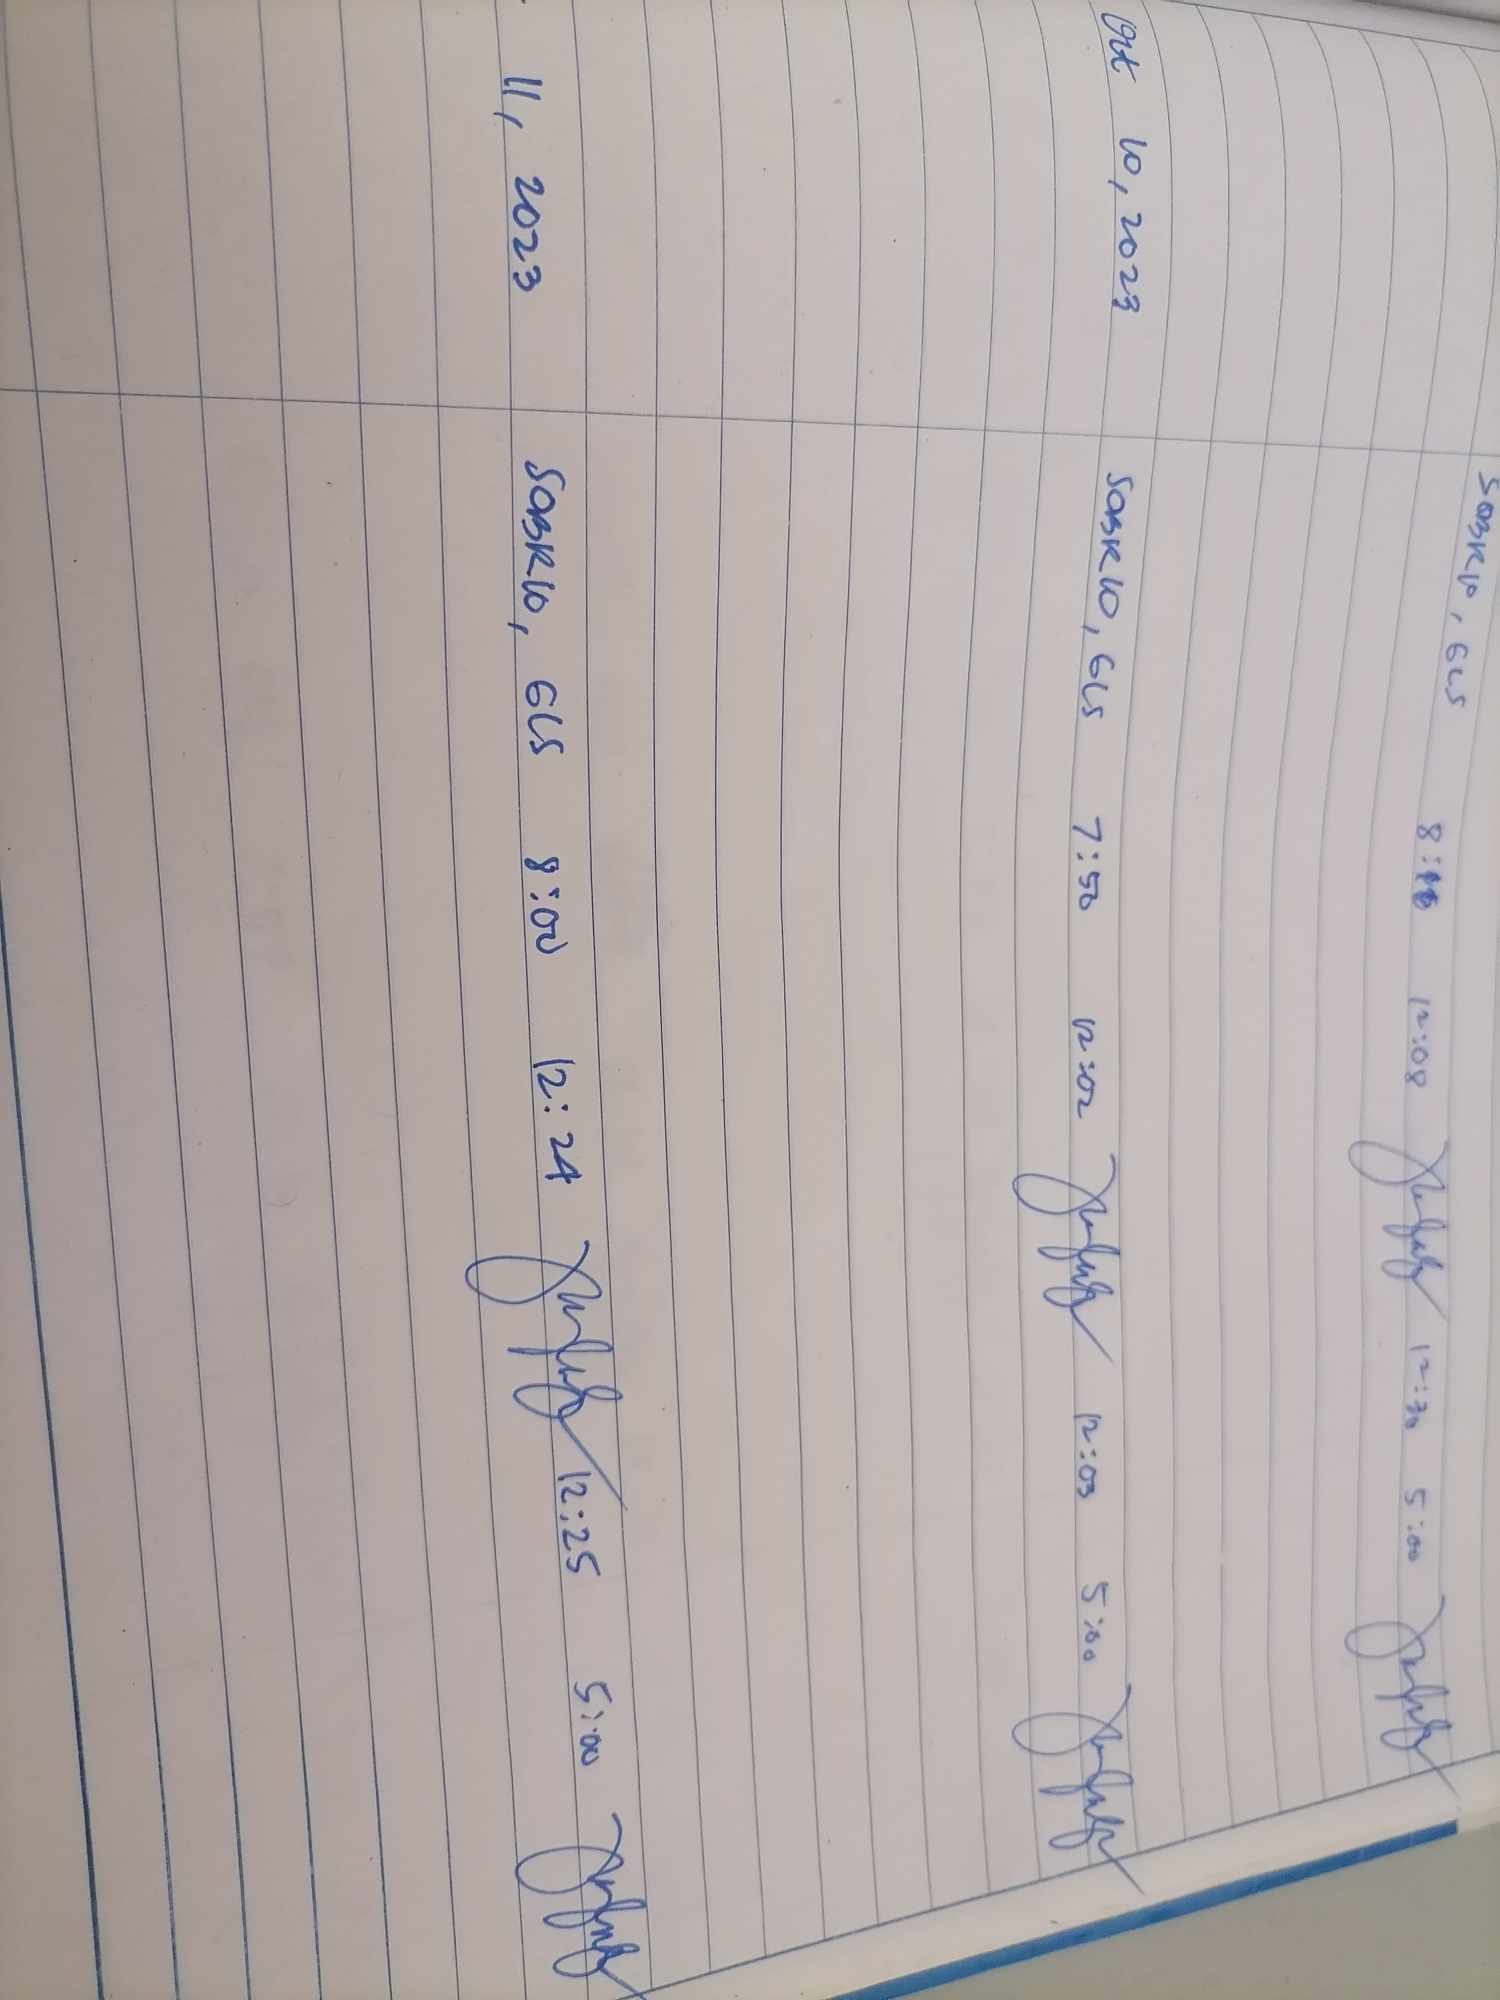 SOBRIO, GLS 12:08 12:30 5:00
Oct 10, 2023 SOBRIO, GLS 7:50 12:02 12:03 5:00
11, 2023 SOBRIO, GLS 8:00 12:24 12:25 5:00